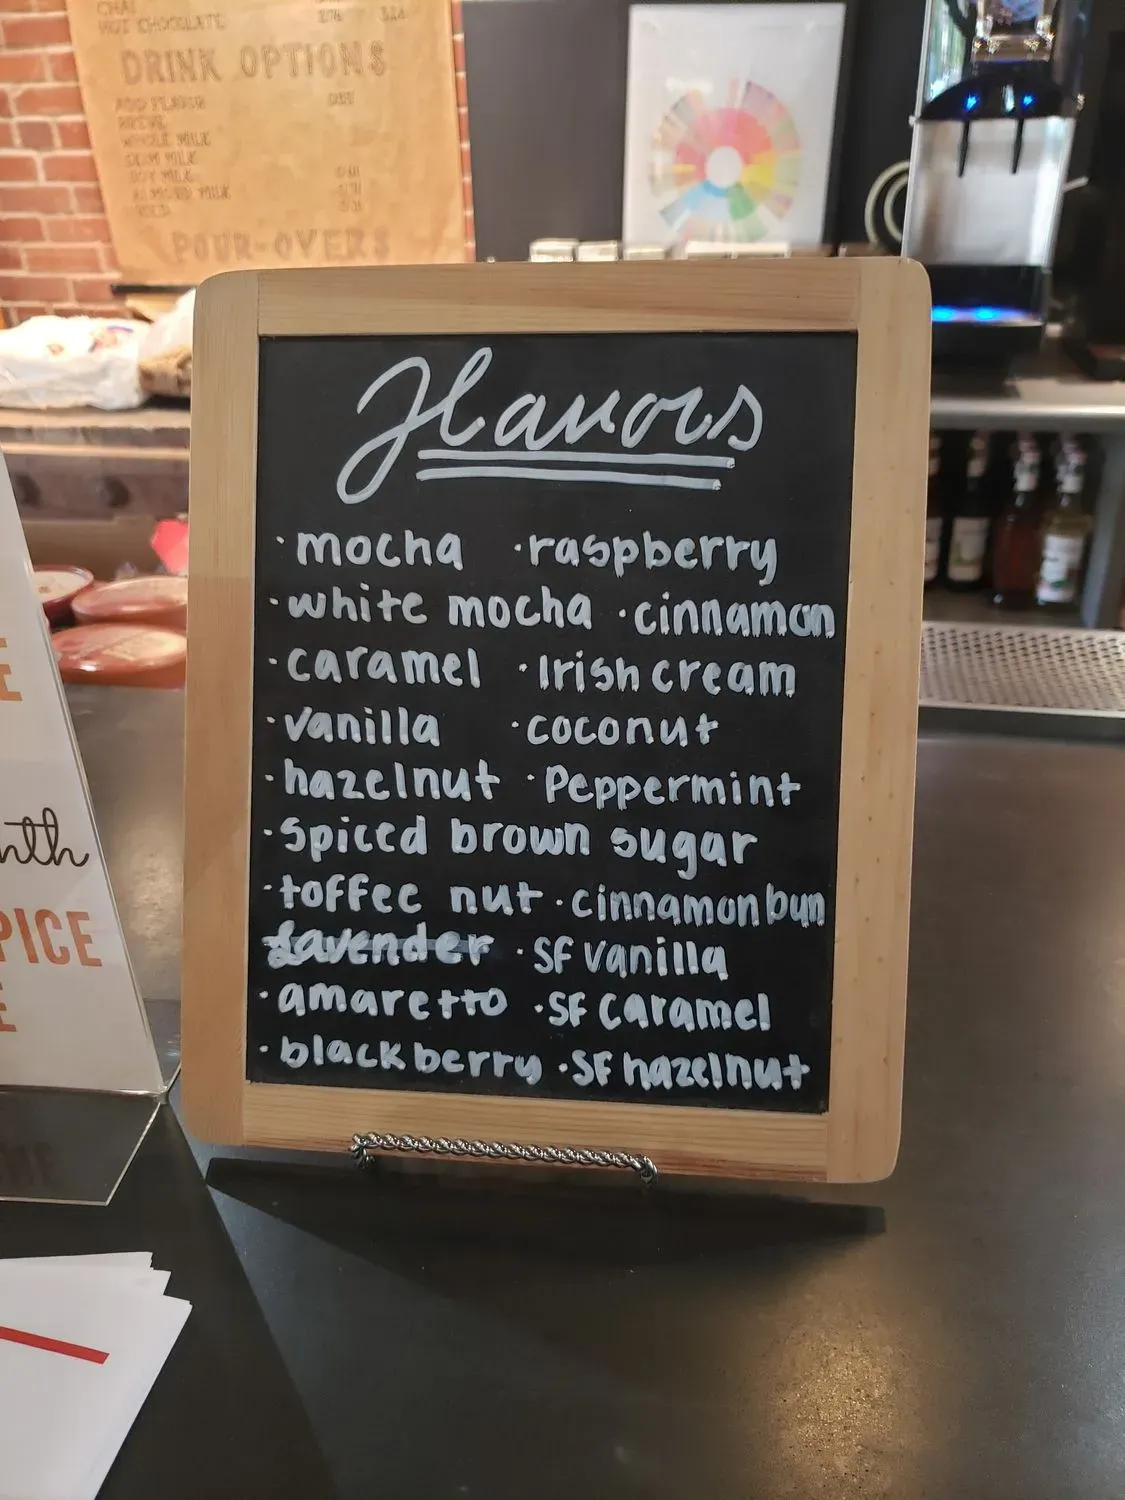 CHAI
HOT CHOCOLATE
DRINK OPTIONS
ADD FLAVOR
BREVE
WHOLE MILK
SKIM MILK
SOY MILK
ALMOND MILK
POUR-OVERS
Flavors
· mocha · raspberry
· white mocha · cinnamon
· caramel · Irish cream
· vanilla · coconut
· hazelnut · Peppermint
· spiced brown sugar
· toffee nut · cinnamon bun
lavender · SF vanilla
· amaretto · SF caramel
· blackberry · SF hazelnut
PICE